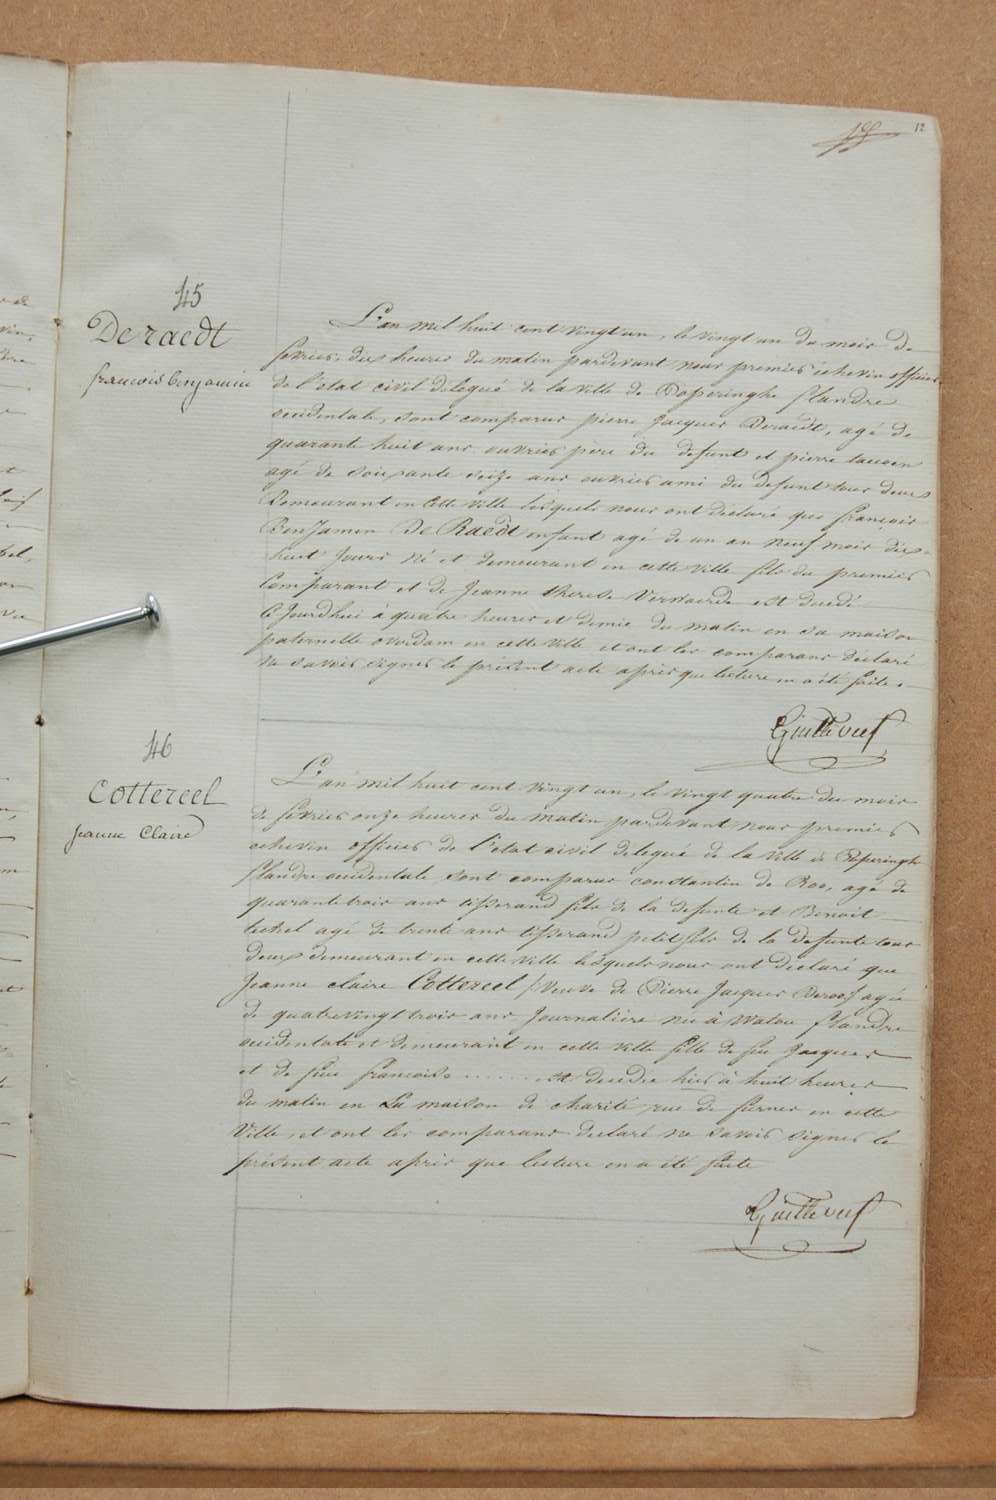 12
45
De raedt
francois benjamin
L'an mil huit cent vingt un, le vingt un du mois de
fevrier, dix heures du matin pardevant nous premier échevin officier
de l'etat civil delegué de la ville de Poperinghe flandre
occidentale, sont comparus pierre Jacques Deraedt, agé de
quarante huit ans ouvrier père du defunt et pierre
agé de soixante seize ans ouvrier ami du defunt tous deux
Demeurant en Cette ville lesquels nous ont declaré que françois
BenJamin De Raedt enfant agé de un an neuf mois dix-
huit Jours né et demeurant en cette ville fils du premier
Comparant et de Jeanne therese est decedé
Ce Jourdhui à quatre heures et demie du matin en sa maison
paternelle overdam en cette ville et ont les comparans déclaré
ne savoir signer le présent acte après que lecture en a été faite.
46
Cottereel
Jeanne Claire
L'an mil huit cent vingt un, le vingt quatre du mois
de fevrier onze heures du matin pardevant nous premier
echevin officier de l'etat civil delegué de la ville de Poperinghe
flandre occidentale sont comparus constantin de Roo, agé de
quarante trois ans tisserand fils de la defunte et Benoit
agé de trente ans tisserand petit fils de la defunte tous
deux demeurant en cette ville lesquels nous ont declaré que
Jeanne claire Cottereel /:Veuve de Pierre Jacques Deroo:/ agée
de quatrevingt trois ans Journalière née à Watou flandre
occidentale et demeurant en cette ville fille de feu Jacques
et de feue francoise ....... est decedée hier à huit heures
du matin en La maison de charité rue de furnes en cette
Ville, et ont les comparans declaré ne savoir signer le
présent acte après que lecture en a été faite